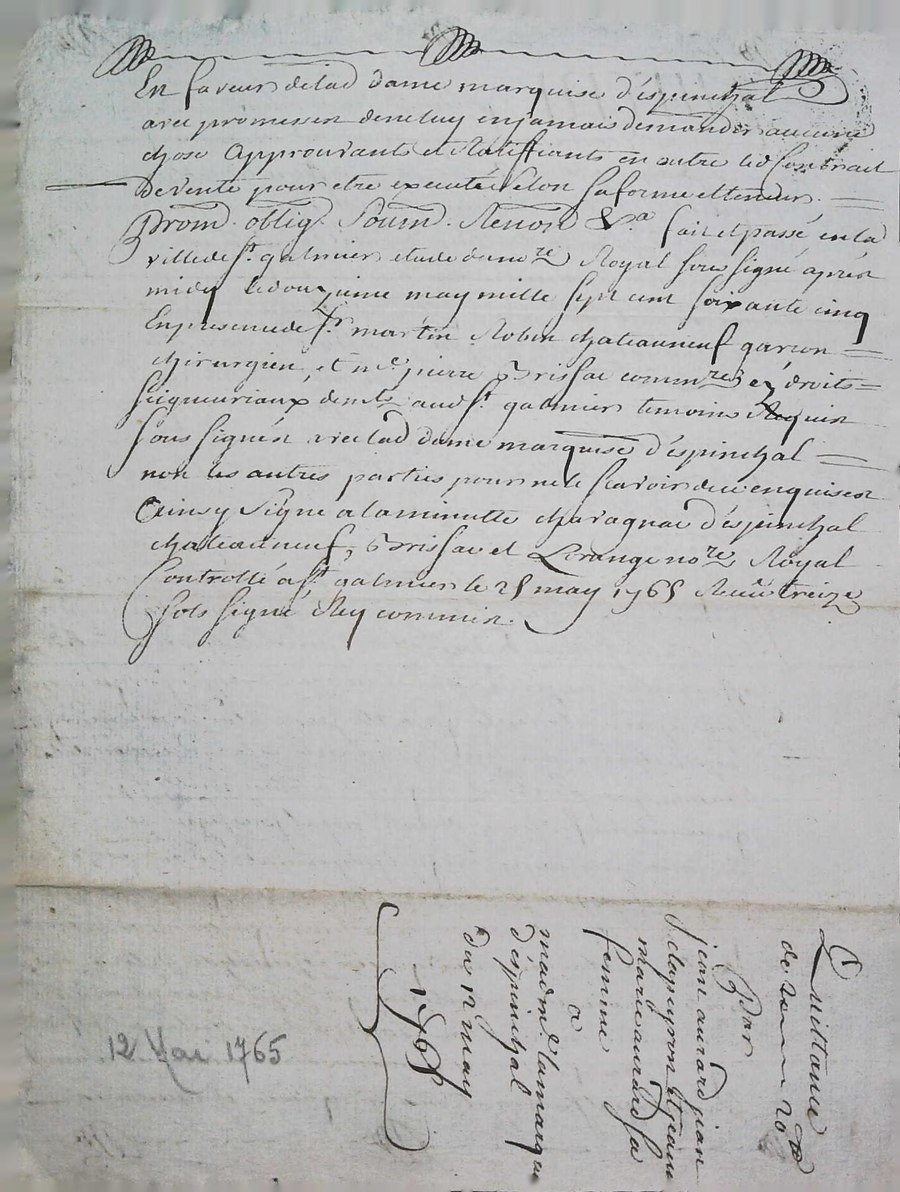 En faveur delad dame marquise d'espinchal
avec promesses deneluy enjamais demander aucune
chose approuvants et Ratiffiants en outre led Contrait
devente pour etre executé selon sa forme et teneur.
Prom. oblig. Soum. Renon &a fait et passé en la
ville de St galmier etude dunore Royal sous signé après
midy le douzieme may mille sept cent soixante cinq
En presence de sr martin Robin chateauneuf garçon
chirurgien, et me pierre Brissac commre ez droits
seigneuriaux dem audst galmier temoins Requis
sous signés avec lad dame marquise d'espinchal
non les autres parties pour ne le scavoir dece enquises
Ainsy signé a la minutte charagnac d'espinchal
chateauneuf, Brissac et Lorange nore Royal
Controllé a st galmier le 25 may 1765 Recu treize
sols signé Rey commis.
Quittance
de 20
Par
jean aurard jean
clapeyron et jeanne
marie aurard sa
femme
a
madme la marquise
d'espinchal
du 12 may
1765
12 Mai 1765